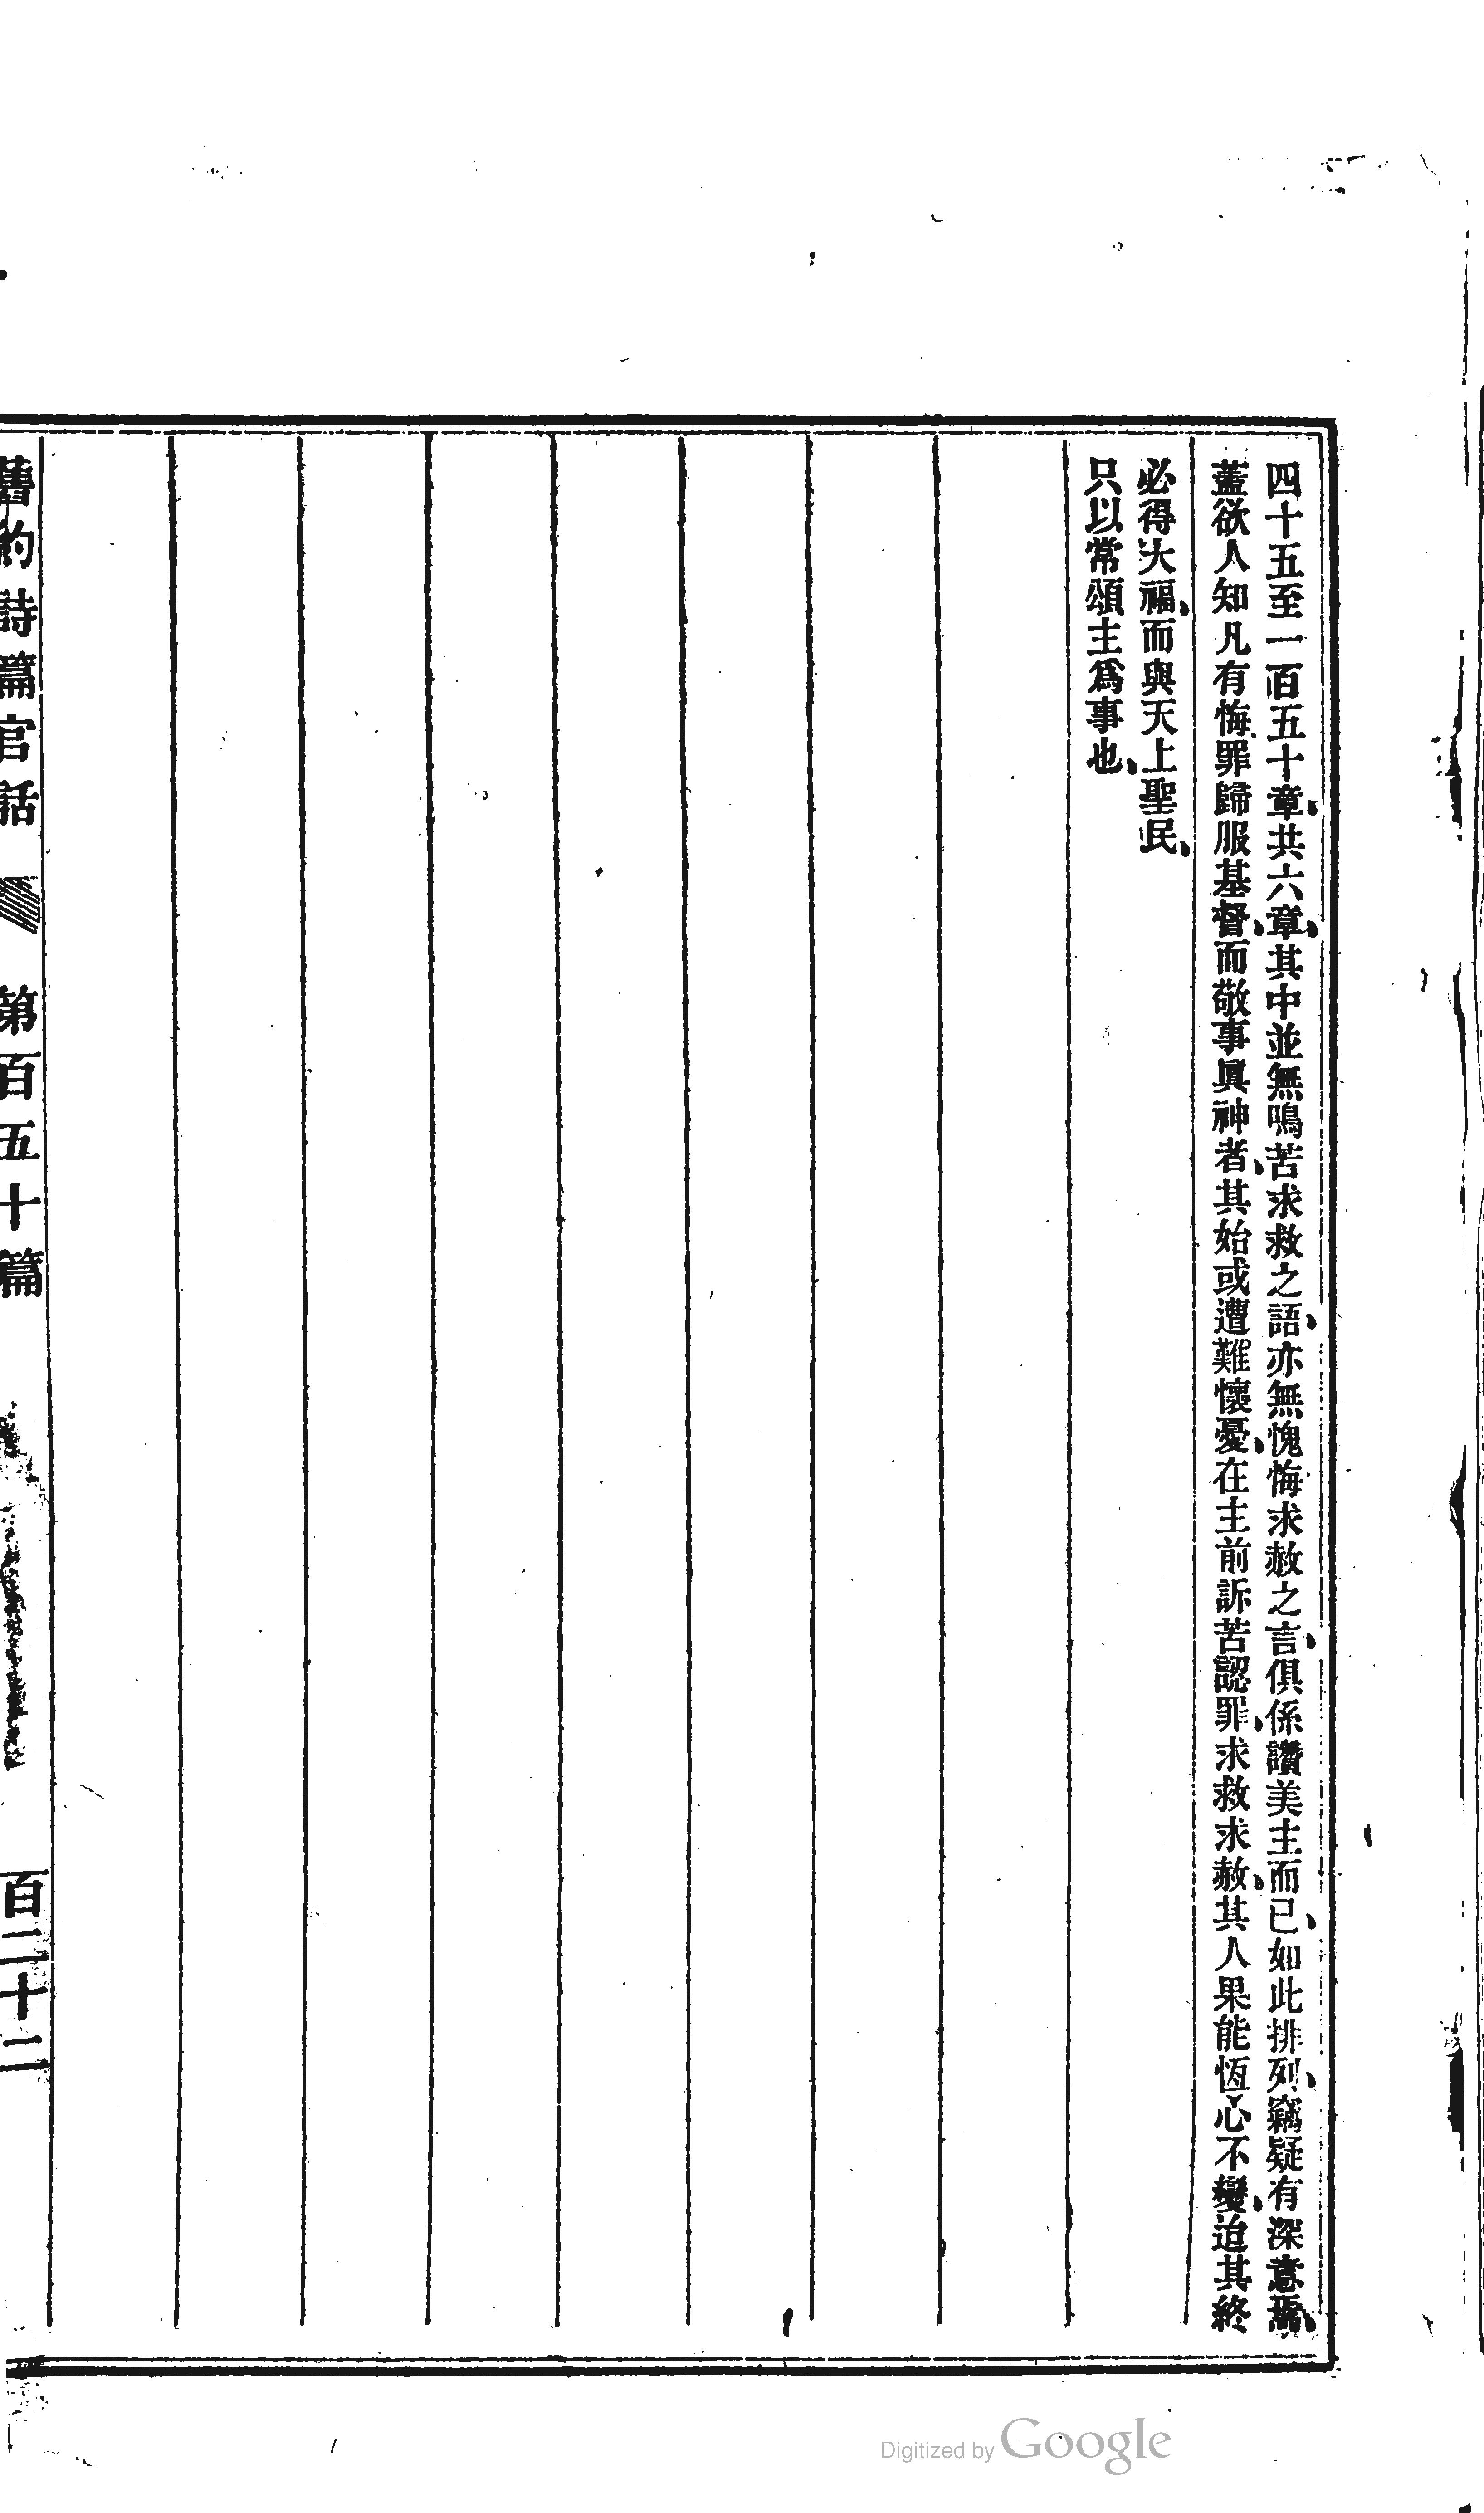 四十五至一百五十章、共六章、其中並無鳴苦求救之語、亦無愧悔求赦之言、俱係讚美主而已、如此排列、竊疑有深意焉、
蓋欲人知凡有悔罪歸服基督、而敬事眞神者、其始或遭難懷憂、在主前訴苦認罪、求救求赦、其人果能恆心不變、迨其終
必得大福、而與天上聖民、
只以常頌主爲事也、
舊約詩篇官話 第百五十篇 百二十二
Digitized by Google